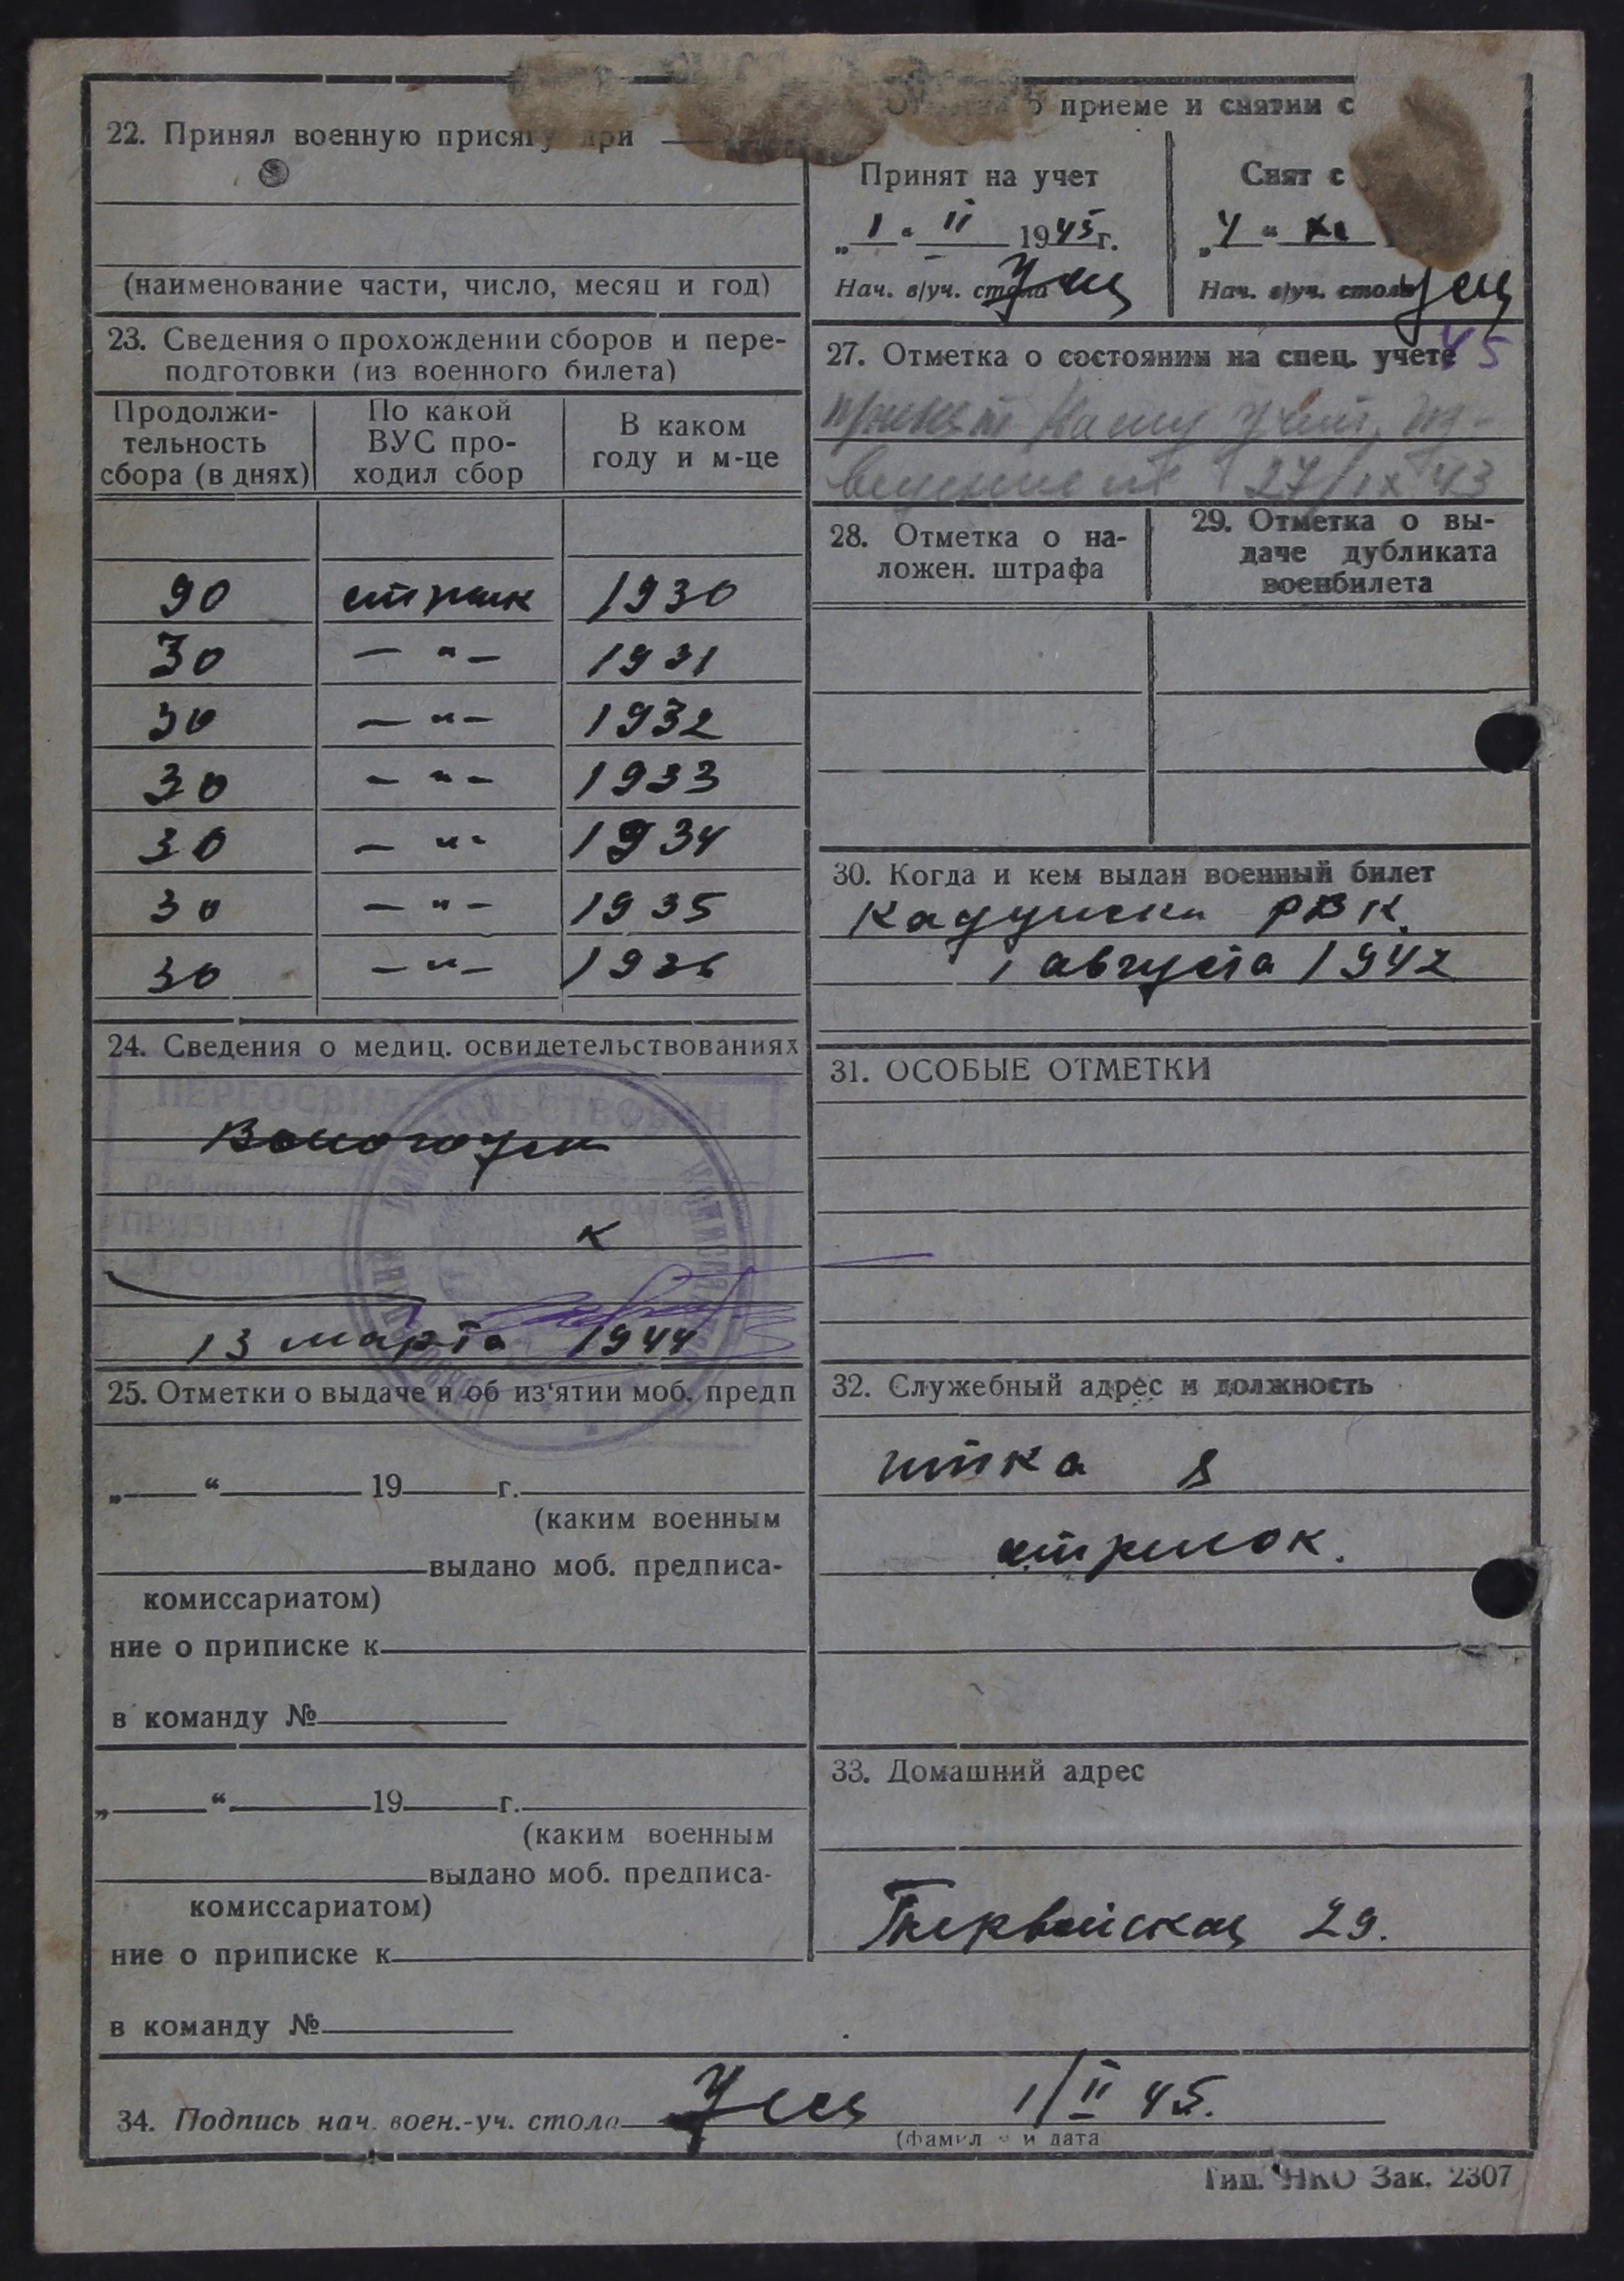 22. Принял военную присягу при
(наименование части, число, месяц и год)
23. Сведения о прохождении сборов и пере-
подготовки (из военного билета)
Продолжи-
тельность
сбора (в днях)
По какой
ВУС про-
ходил сбор
В каком
году и м-це
90 1930
30 — " — 1931
30 — " — 1932
30 — " — 1933
30 — " — 1934
30 — " — 1935
30 — " — 1936
24. Сведения о медиц. освидетельствованиях
ПЕРЕОСВИДЕТЕЛЬСТВОВАН
ПРИЗНАН
к
13 марта 1944
25. Отметки о выдаче и об из'ятии моб. предп
„ “ 19 г.
(каким военным
выдано моб. предписа-
комиссариатом)
ние о приписке к
в команду №
„ “ 19 г.
(каким военным
выдано моб. предписа-
комиссариатом)
ние о приписке к
в команду №
о приеме и снятии с
Принят на учет
„ 1 “ II 1945 г.
Нач. в/уч. стола
Снят с
„ 4 “ XI
Нач. в/уч. стола
45
27. Отметка о состоянии на спец. учете
принят
27/IX 43
28. Отметка о на-
ложен. штрафа
29. Отметка о вы-
даче дубликата
военбилета
30. Когда и кем выдан военный билет
РВК.
1 августа 1942
31. ОСОБЫЕ ОТМЕТКИ
32. Служебный адрес и должность
стрелок.
33. Домашний адрес
29.
34. Подпись нач. воен.-уч. стола 1/II 45.
(фамил и дата
Тип. НКО Зак. 2307